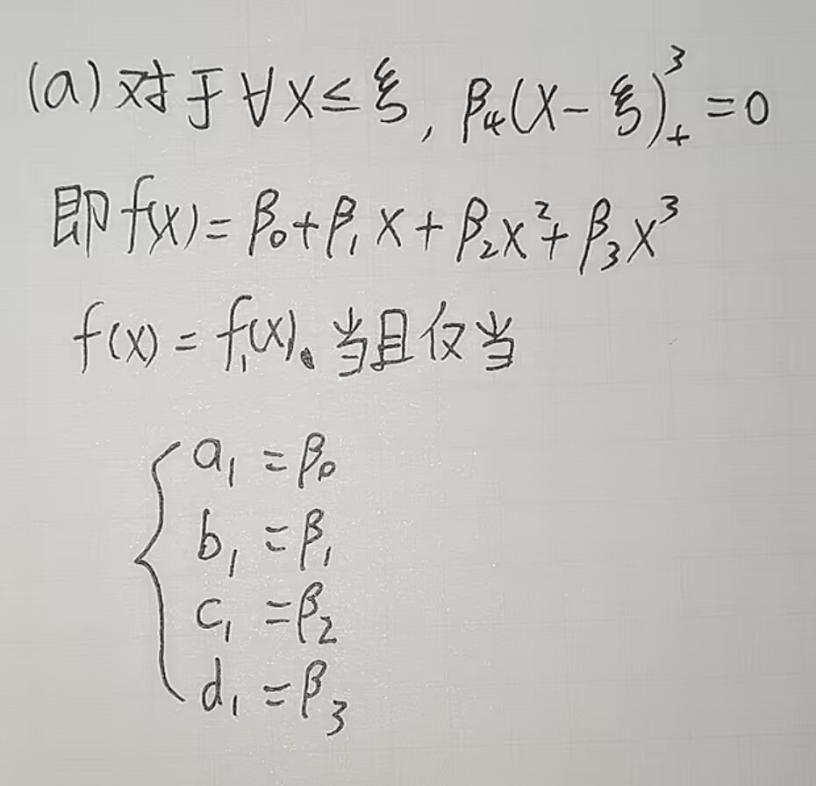 (a) 对于∀X≤ξ, β₄(X-ξ)₊³=0
即f(X)=β₀+β₁X+β₂X²+β₃X³
f(X)=f₁(X)、当且仅当
a₁=β₀
b₁=β₁
c₁=β₂
d₁=β₃